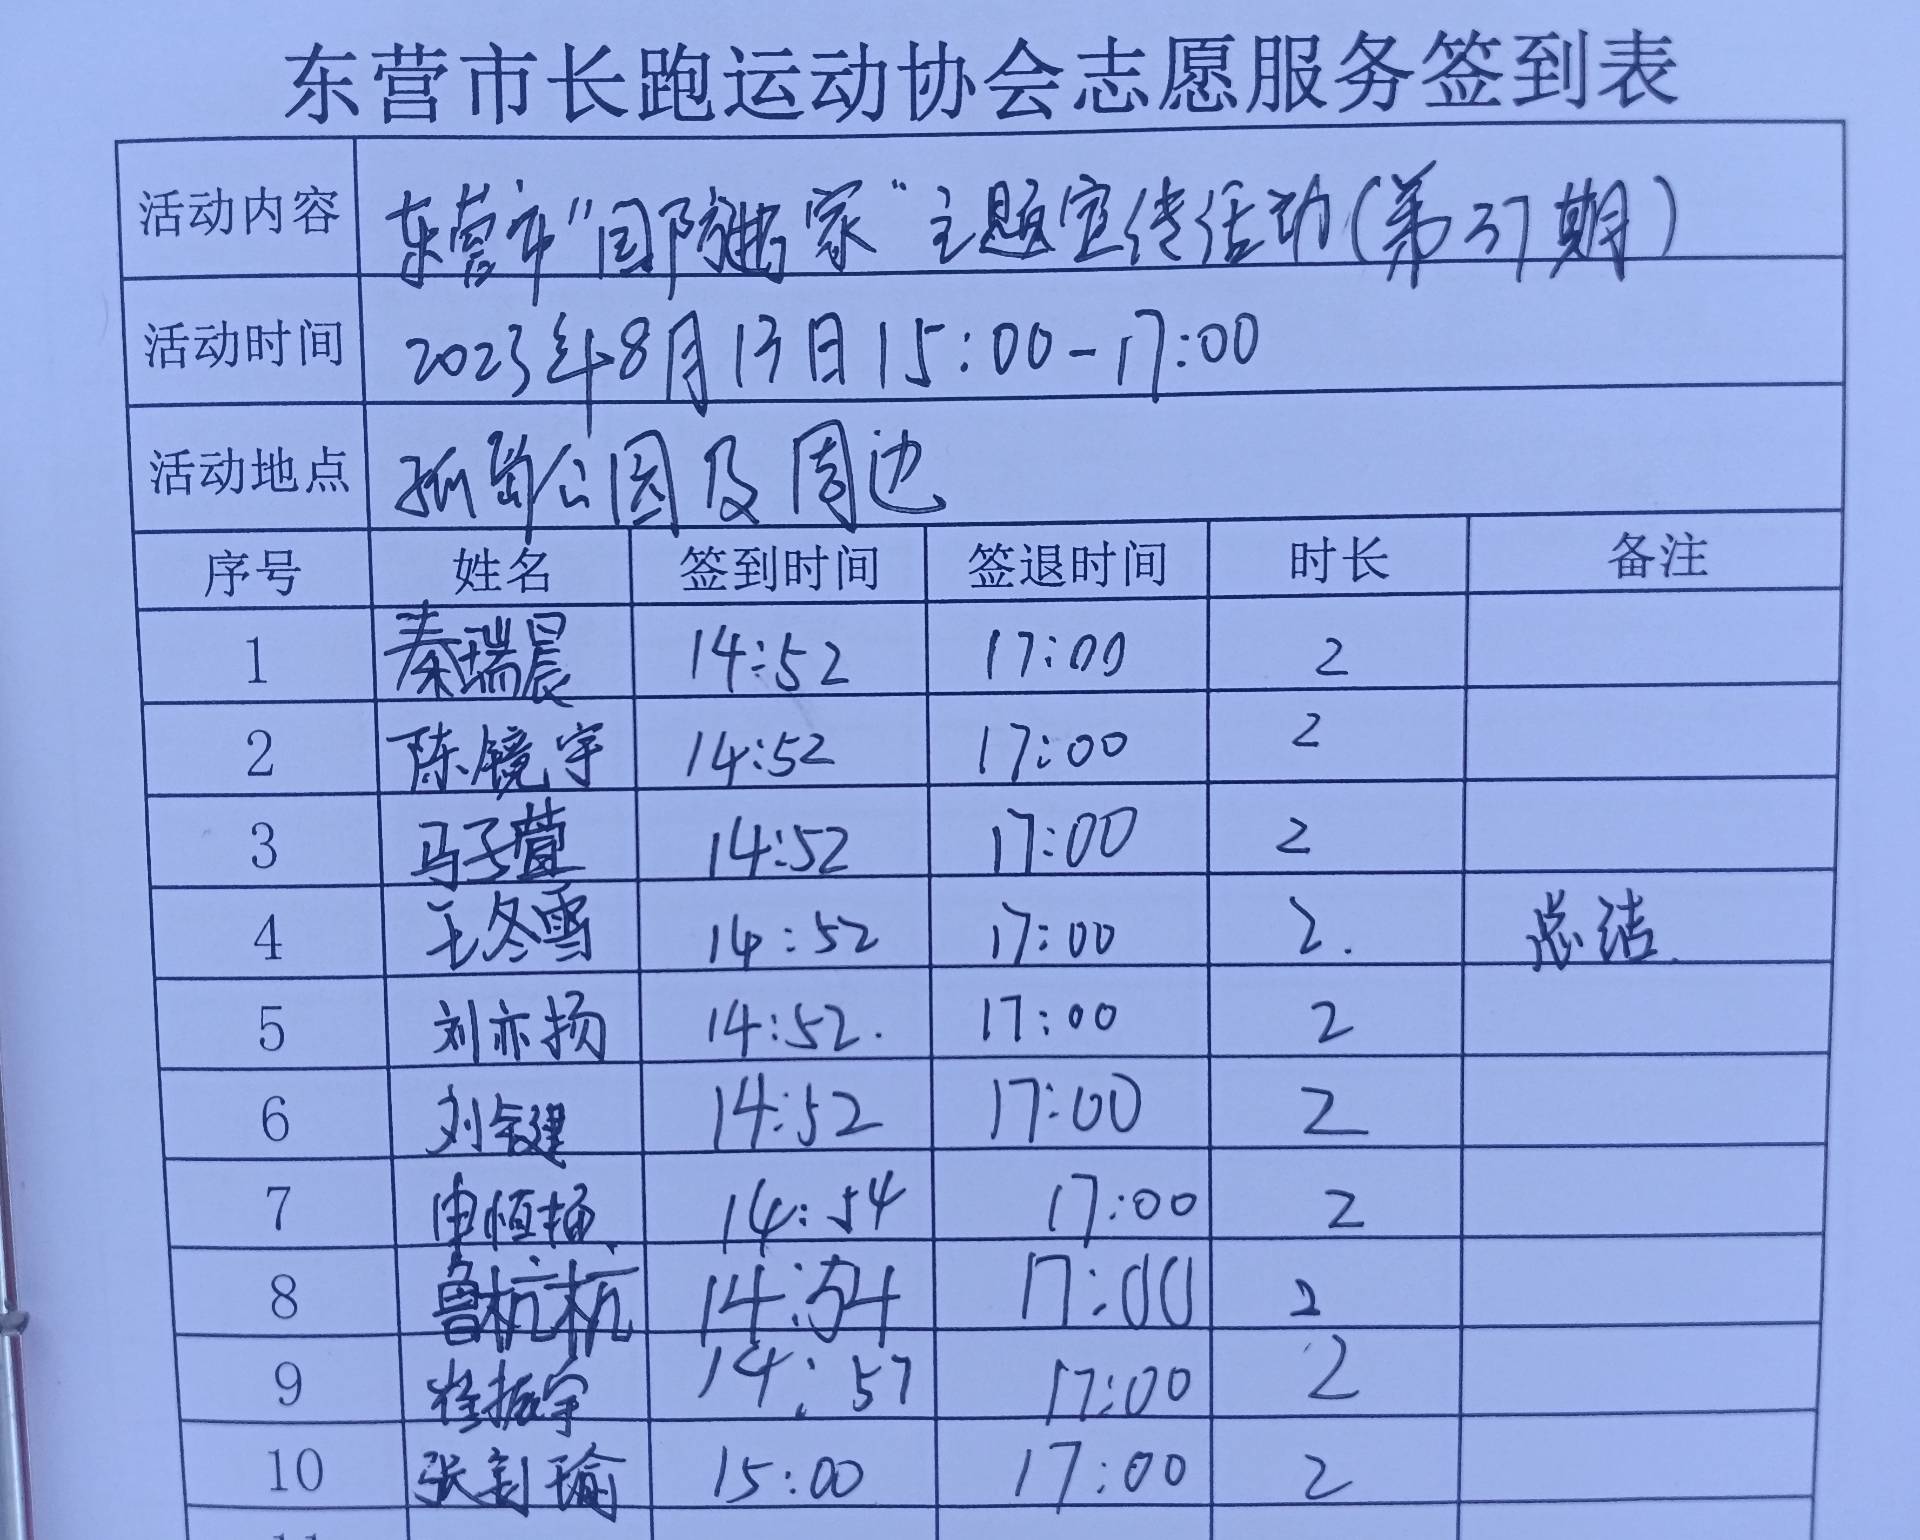 东营市长跑运动协会志愿服务签到表
活动内容 东营市“国防进家”主题宣传活动(第37期)
活动时间 2023年8月13日15:00-17:00
活动地点 孤岛公园及周边
序号 姓名 签到时间 签退时间 时长 备注
1 秦瑞晨 14:52 17:00 2
2 陈镜宇 14:52 17:00 2
3 马子萱 14:52 17:00 2
4 王冬雪 14:52 17:00 2. 总结.
5 刘亦扬 14:52. 17:00 2
6 刘 14:52 17:00 2
7 申恒扬 14:54 17:00 2
8 鲁杭杭 14:54 17:00 2
9 振宇 14:57 17:00 2
10 张 瑜 15:00 17:00 2